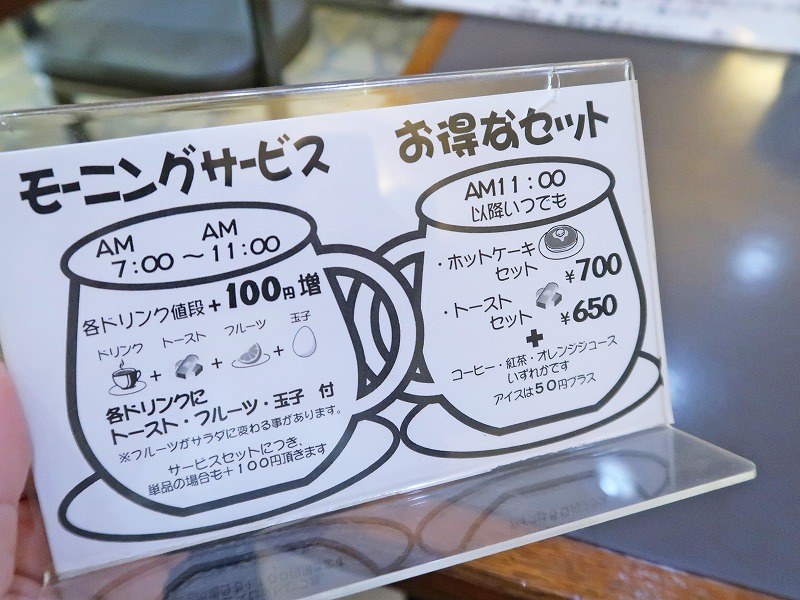 モーニングサービス
AM 7:00 ～ AM 11:00
各ドリンク値段+100円増
ドリンク + トースト + フルーツ + 玉子
各ドリンクに
トースト・フルーツ・玉子 付
※フルーツがサラダに変わる事があります。
サービスセットにつき、
単品の場合も+100円頂きます
お得なセット
AM11:00
以降いつでも
・ホットケーキ
セット ¥700
・トースト
セット ¥650
+
コーヒー・紅茶・オレンジジュース
いずれかです
アイスは50円プラス